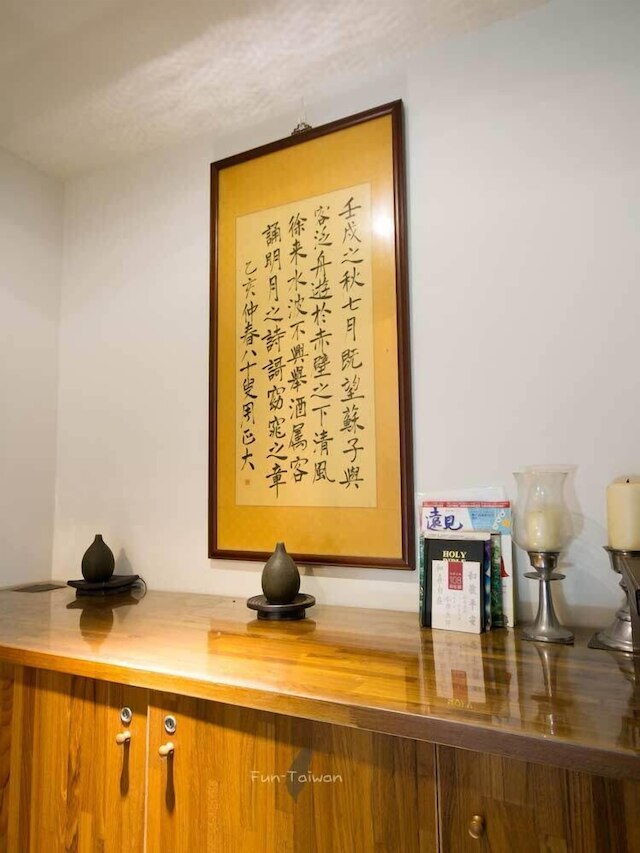 壬戌之秋七月既望蘇子與
客泛舟遊於赤壁之下清風
徐来水波不興舉酒属客
誦明月之詩謌窈窕之章
乙亥仲春八十叟
遠見
HOLY
BIBLE
108
Fun-Taiwan